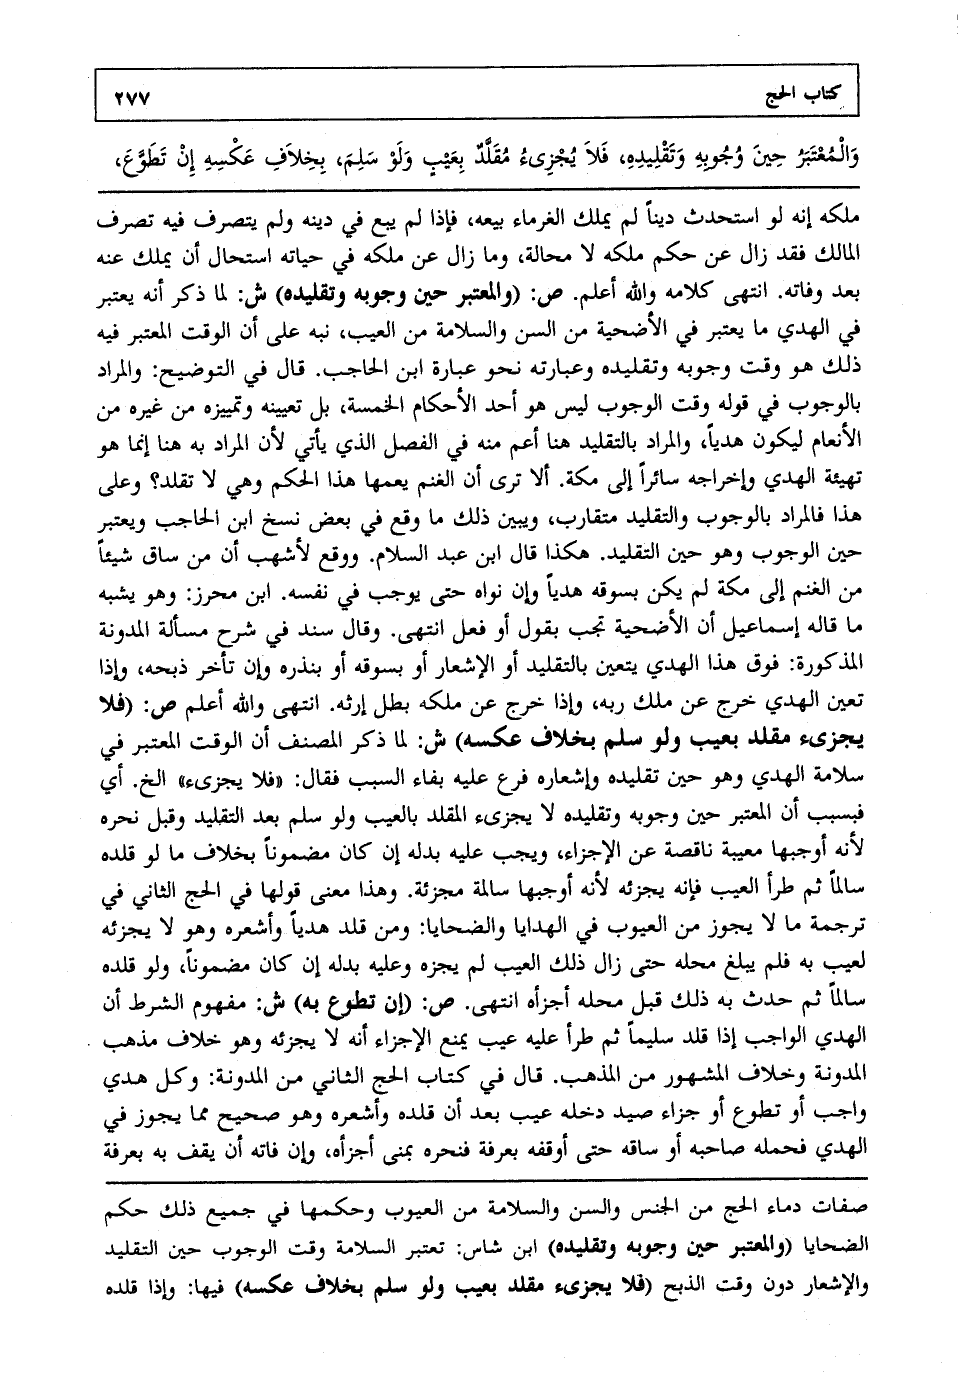 كتاب الحج
٢٧٧
وَالْمُعْتَبَرُ حِينَ وُجُوبِهِ وَتَقْلِيدِهِ، فَلَا يُجْزِىءُ مُقَلَّدٌ بِعَيْبٍ وَلَوْ سَلِمَ، بِخِلَافِ عَكْسِهِ إِنْ تَطَوَّعَ،
ملكه إنه لو استحدث ديناً لم يملك الغرماء بيعه، فإذا لم يبع في دينه ولم يتصرف فيه تصرف
المالك فقد زال عن حكم ملكه لا محالة، وما زال عن ملكه في حياته استحال أن يملك عنه
بعد وفاته. انتهى كلامه والله أعلم. ص: (والمعتبر حين وجوبه وتقليده) ش: لما ذكر أنه يعتبر
في الهدي ما يعتبر في الأضحية من السن والسلامة من العيب، نبه على أن الوقت المعتبر فيه
ذلك هو وقت وجوبه وتقليده وعبارته نحو عبارة ابن الحاجب. قال في التوضيح: والمراد
بالوجوب في قوله وقت الوجوب ليس هو أحد الأحكام الخمسة، بل تعيينه وتمييزه من غيره من
الأنعام ليكون هدياً، والمراد بالتقليد هنا أعم منه في الفصل الذي يأتي لأن المراد به هنا إنما هو
تهيئة الهدي وإخراجه سائراً إلى مكة. ألا ترى أن الغنم يعمها هذا الحكم وهي لا تقلد؟ وعلى
هذا فالمراد بالوجوب والتقليد متقارب، ويبين ذلك ما وقع في بعض نسخ ابن الحاجب ويعتبر
حين الوجوب وهو حين التقليد. هكذا قال ابن عبد السلام. ووقع لأشهب أن من ساق شيئاً
من الغنم إلى مكة لم يكن بسوقه هدياً وإن نواه حتى يوجب في نفسه. ابن محرز: وهو يشبه
ما قاله إسماعيل أن الأضحية تجب بقول أو فعل انتهى. وقال سند في شرح مسألة المدونة
المذكورة: فوق هذا الهدي يتعين بالتقليد أو الإشعار أو بسوقه أو بنذره وإن تأخر ذبحه، وإذا
تعين الهدي خرج عن ملك ربه، وإذا خرج عن ملكه بطل إرثه. انتهى والله أعلم ص: (فلا
يجزىء مقلد بعيب ولو سلم بخلاف عكسه) ش: لما ذكر المصنف أن الوقت المعتبر في
سلامة الهدي وهو حين تقليده وإشعاره فرع عليه بفاء السبب فقال: «فلا يجزىء» الخ. أي
فبسبب أن المعتبر حين وجوبه وتقليده لا يجزىء المقلد بالعيب ولو سلم بعد التقليد وقبل نحره
لأنه أوجبها معيبة ناقصة عن الإجزاء، ويجب عليه بدله إن كان مضموناً بخلاف ما لو قلده
سالماً ثم طرأ العيب فإنه يجزئه لأنه أوجبها سالمة مجزئة. وهذا معنى قولها في الحج الثاني في
ترجمة ما لا يجوز من العيوب في الهدايا والضحايا: ومن قلد هدياً وأشعره وهو لا يجزئه
لعيب به فلم يبلغ محله حتى زال ذلك العيب لم يجزه وعليه بدله إن كان مضموناً، ولو قلده
سالماً ثم حدث به ذلك قبل محله أجزأه انتهى. ص: (إن تطوع به) ش: مفهوم الشرط أن
الهدي الواجب إذا قلد سليماً ثم طرأ عليه عيب يمنع الإجزاء أنه لا يجزئه وهو خلاف مذهب
المدونة وخلاف المشهور من المذهب. قال في كتاب الحج الثاني من المدونة: وكل هدي
واجب أو تطوع أو جزاء صيد دخله عيب بعد أن قلده وأشعره وهو صحيح مما يجوز في
الهدي فحمله صاحبه أو ساقه حتى أوقفه بعرفة فنحره بمنى أجزأه، وإن فاته أن يقف به بعرفة
صفات دماء الحج من الجنس والسن والسلامة من العيوب وحكمها في جميع ذلك حكم
الضحايا (والمعتبر حين وجوبه وتقليده) ابن شاس: تعتبر السلامة وقت الوجوب حين التقليد
والإشعار دون وقت الذبح (فلا يجزىء مقلد بعيب ولو سلم بخلاف عكسه) فيها: وإذا قلده